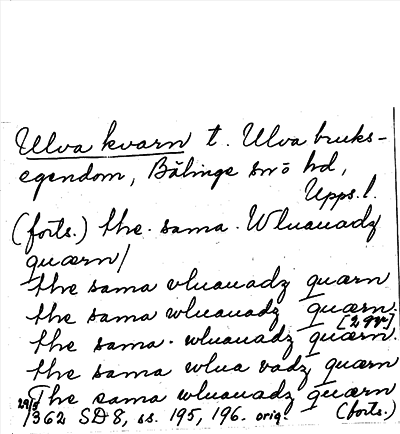 Ulva kvarn t. Ulva bruks-
egendom, Bälinge sn o hd,
Upps. l.
(forts.) the. sama. Wluauadz
quærn/
the sama vluauadz quærn
the sama wluauadz quærn.
[2 gr]
the sama. wluauadz quærn.
the sama wlua vadz quærn
The sama wluauadz quærn
29/5 1362 SD 8, ss. 195, 196. orig. (forts.)